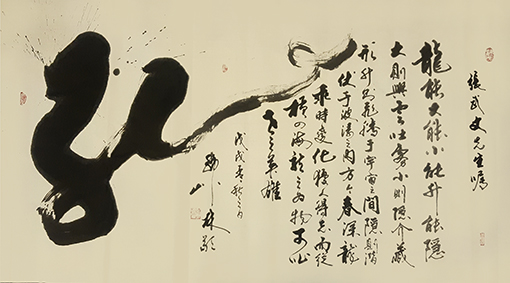 龍
張武先生嘱
龍能大能小能升能隱
大則興雲吐霧小則隱介藏
形升則飛騰于宇宙之間隱則潛
伏于波濤之内方今春深龍
乘時變化猶人得志而縱
橫四海龍之為物可比
世之英雄
戊戌年秋月